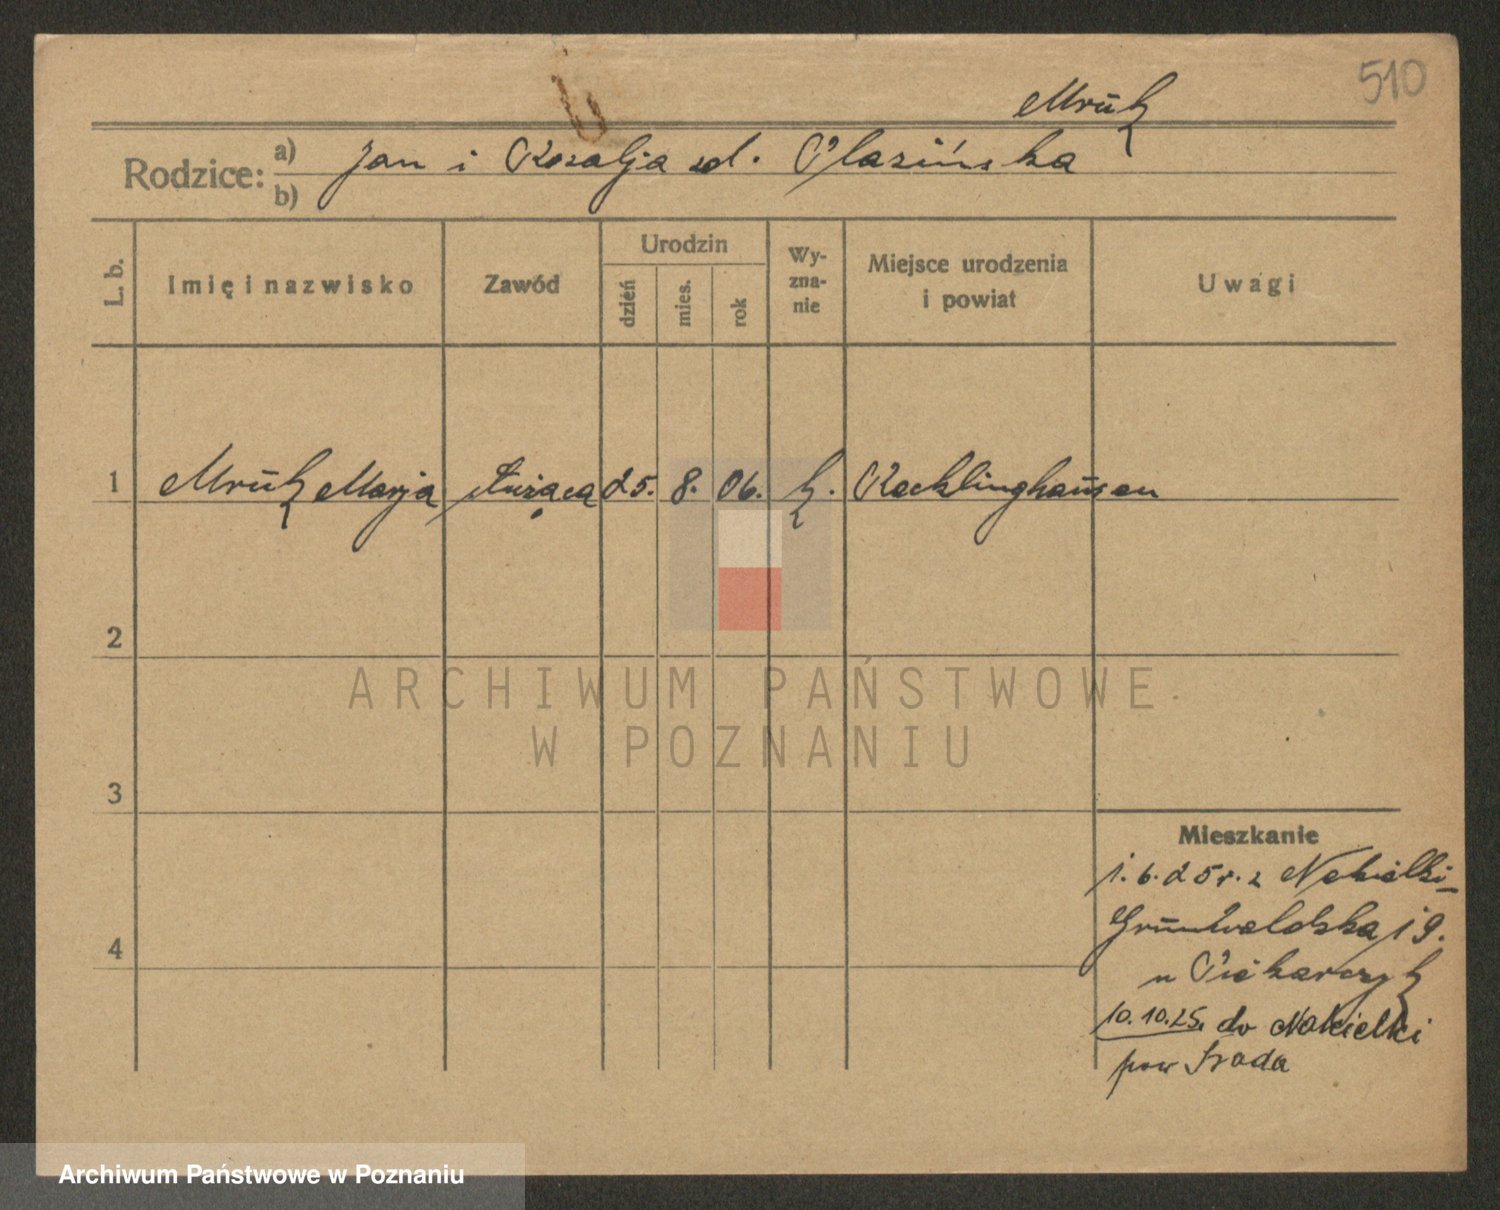 510
Mruk
Rodzice: a) Jan i Rozalja zd.
b)
L. b. Imię i nazwisko Zawód Urodzin dzień mies. rok Wy-zna-nie Miejsce urodzenia i powiat Uwagi
1 Mruk Marja służąca 25. 8. 06. k. Recklinghausen
2
ARCHIWUM PAŃSTWOWE
W POZNANIU
3
Mieszkanie
1.6.25 r. z Nekielki
4 Grunwaldzka 19.
u Piekarczyk
10.10.25. do Nekielki
pow Środa
Archiwum Państwowe w Poznaniu